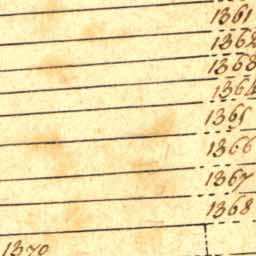 1361
1362
1363
1364
1365
1366
1367
1368
1370